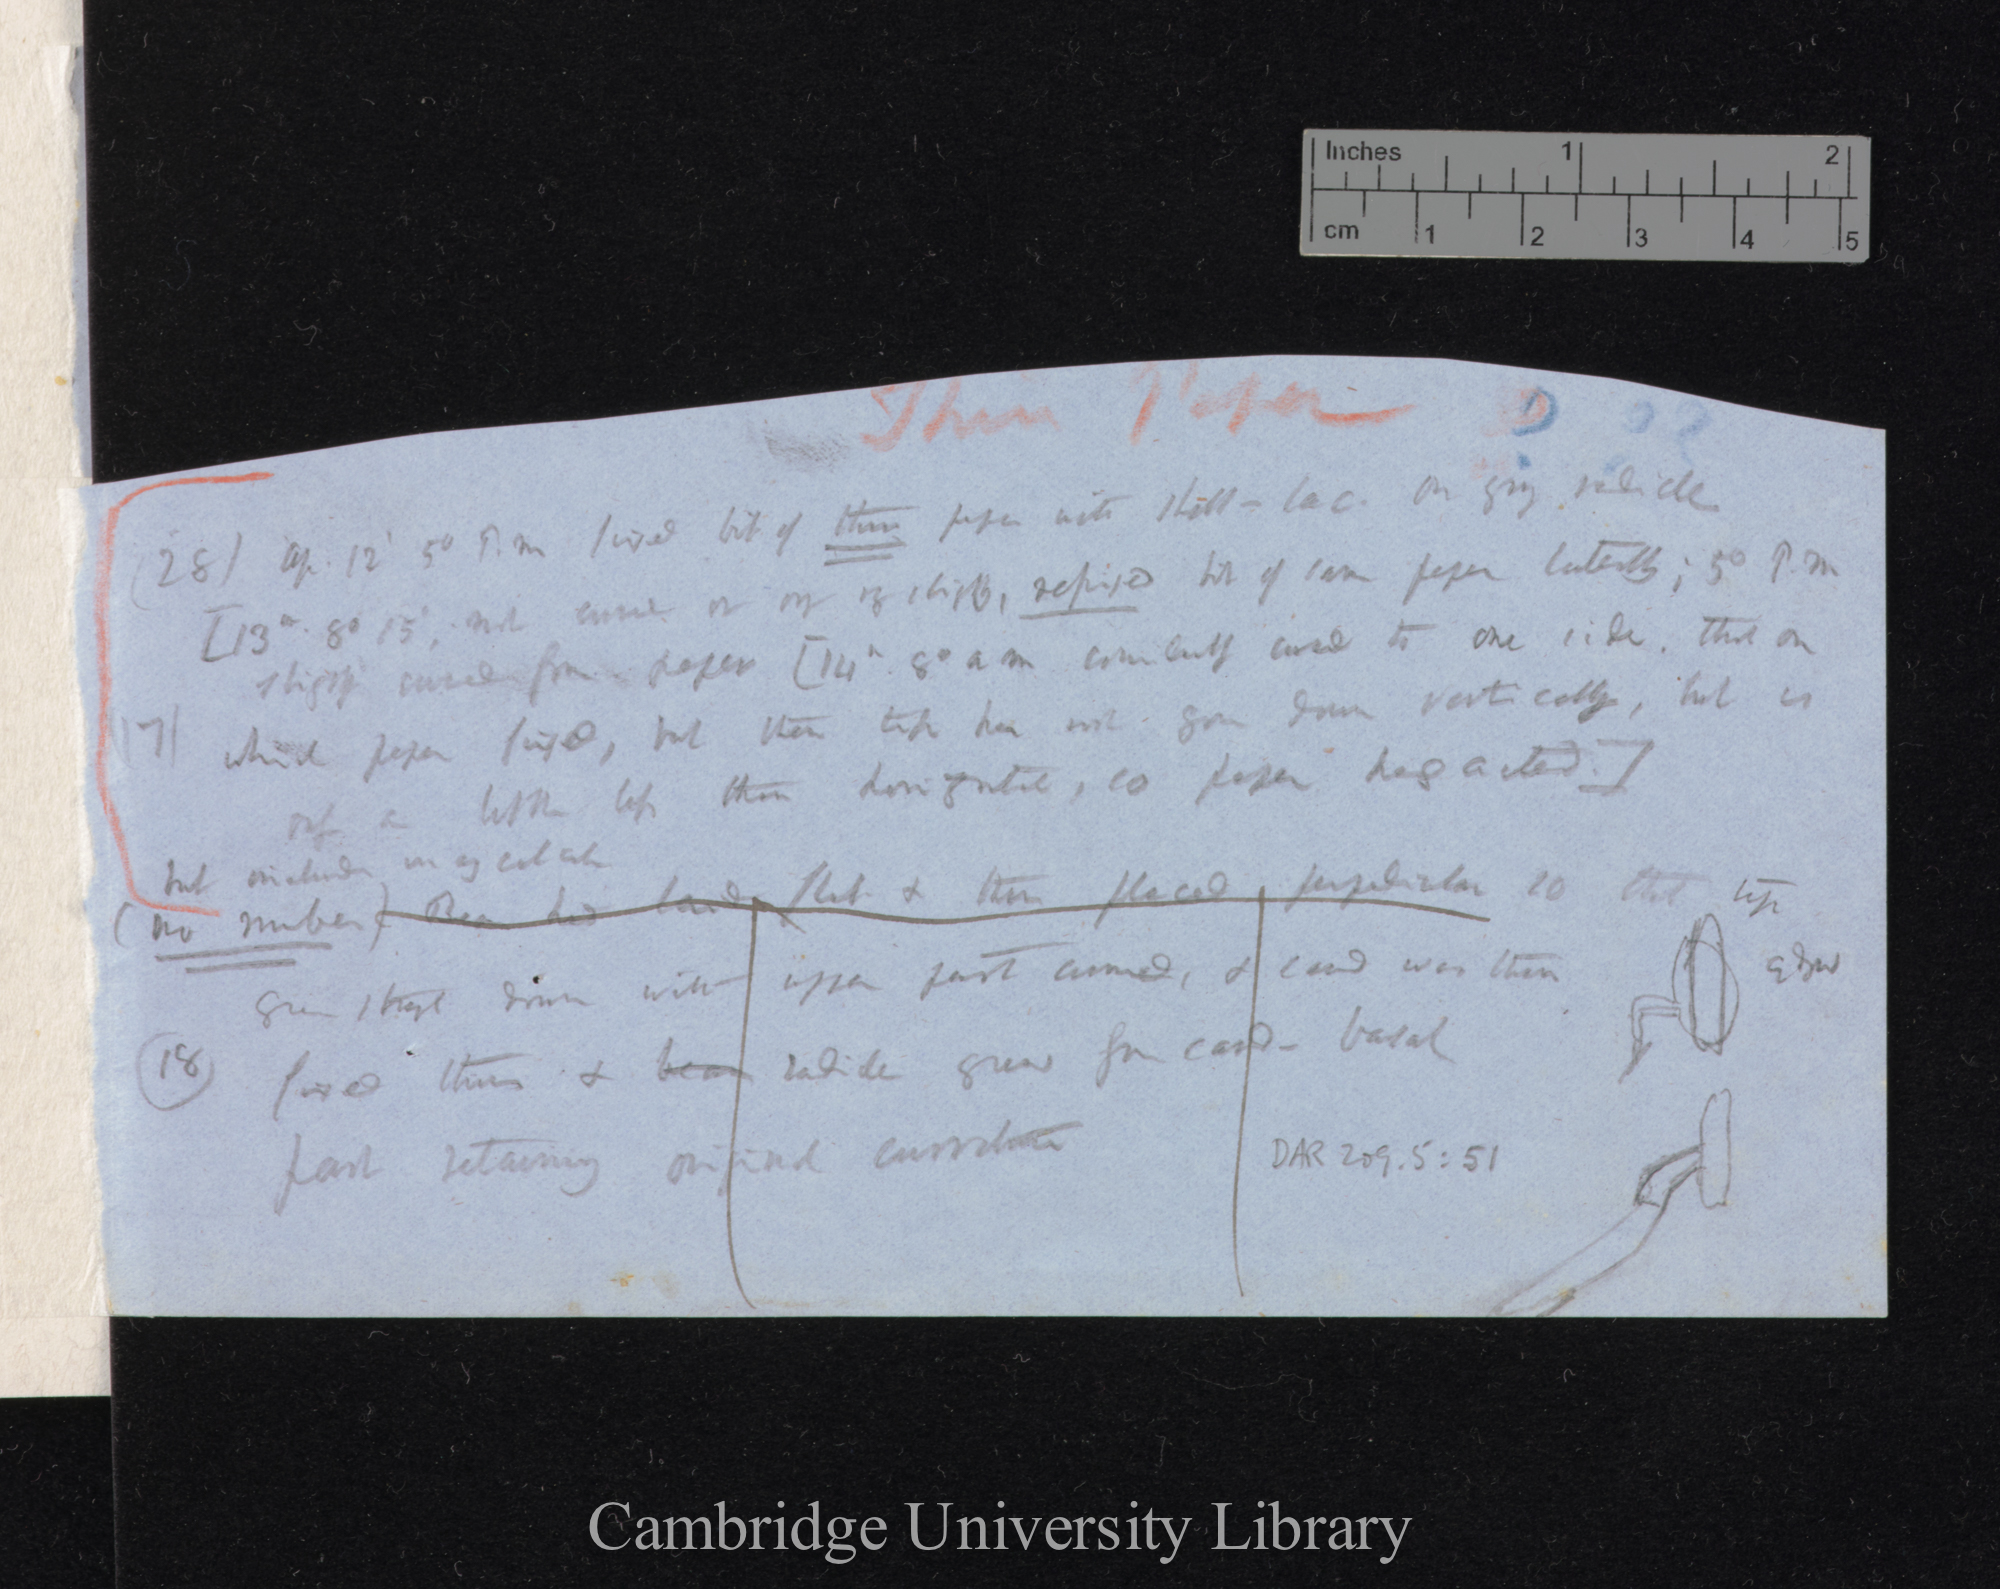 Inches 1 2
cm 1 2 3 4 5
Thin Paper
(28) Ap. 12' 5° P.m fixed bit of thin paper with shell-lac. on radicle
[13th 8° 15', not curved or slightly, refixed bit of same paper laterally; 5° P.m
slightly curved from paper [14th 8° a m curved to one side. that on
17) which paper fixed, but then tip has not gone down vertically, but is
a little less than horizontal, so paper has acted.]
but include in
(no number) Bean laid flat & then placed perpendicular so that tip
grew straight down with upper part curved, & card was then
18 fixed thus & bean radicle grew from card - basal
part retaining original curvature
DAR 209.5:51
Cambridge University Library